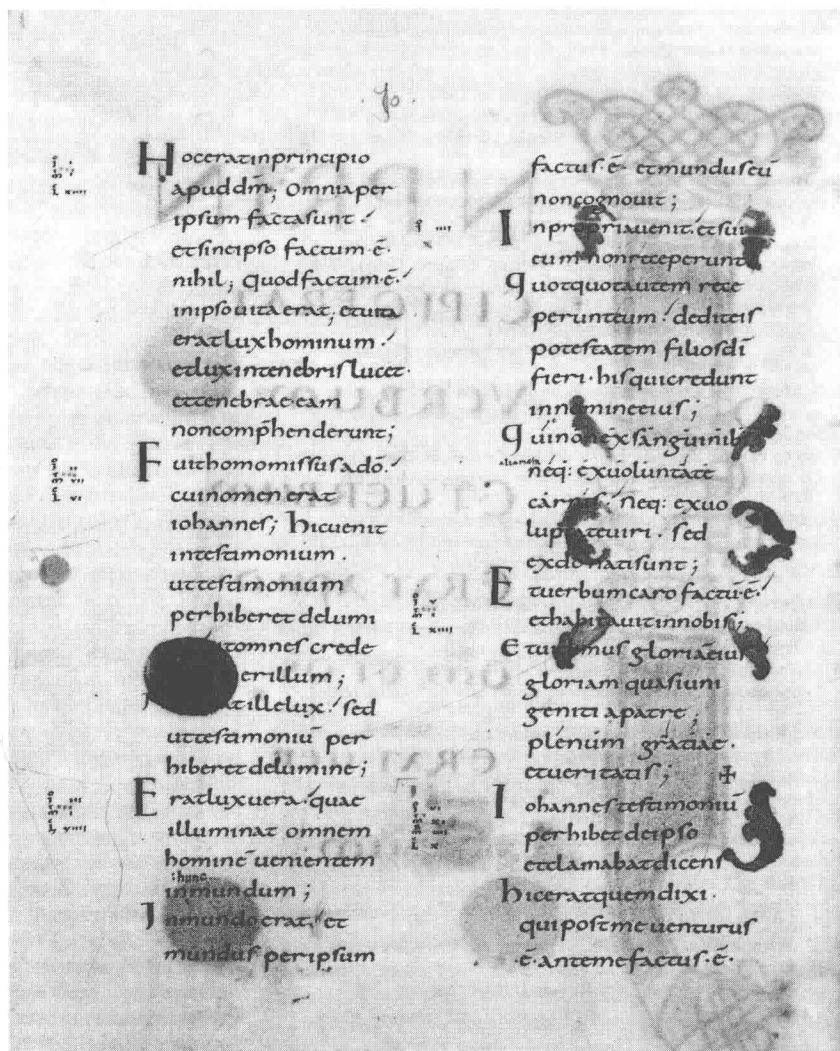 Io
Hoceratinprincipio
apuddm̄; Omniaper
ipsum factasunt
etsineipso factum·ē·
nihil; quodfactum·ē·
inipsouitaerat; etuita
eratluxhominum
etluxintenebrislucet·
ettenebrae eam
noncomp̄henderunt;
Fuithomomissusadō·
cuinomenerat
iohannes; hicuenit
intestimonium·
uttestimonium
perhiberet delumi
omnes crede
erillum;
tillelux· sed
uttestimoniū per
hiberetdelumine;
Eratluxuera· quae
illuminat omnem
hominē uenientem
:hunc
inmundum;
Inmundoerat· et
mundus peripsum
factus·ē· etmunduseū
noncognouit;
Inpropriauenit· etsui
eum nonreceperunt
quotquotautem rece
perunteum· dediteis
potestatem filiosdī
fieri· hisquicredunt
innomineeius;
quinonexsanguinib;
neq: exuoluntate
carnis· neq: exuo
luptateuiri· sed
exdō natisunt;
Etuerbumcaro factū·ē·
ethabitauitinnobis;
Etuidimus gloriāeius
gloriam quasiuni
geniti apatre;
plenum gratiae·
etueritatis;
Iohannestestimoniū
perhibet deipso
etclamabatdicens
hiceratquemdixi·
quipostme uenturus
·ē· antemefactus·ē·